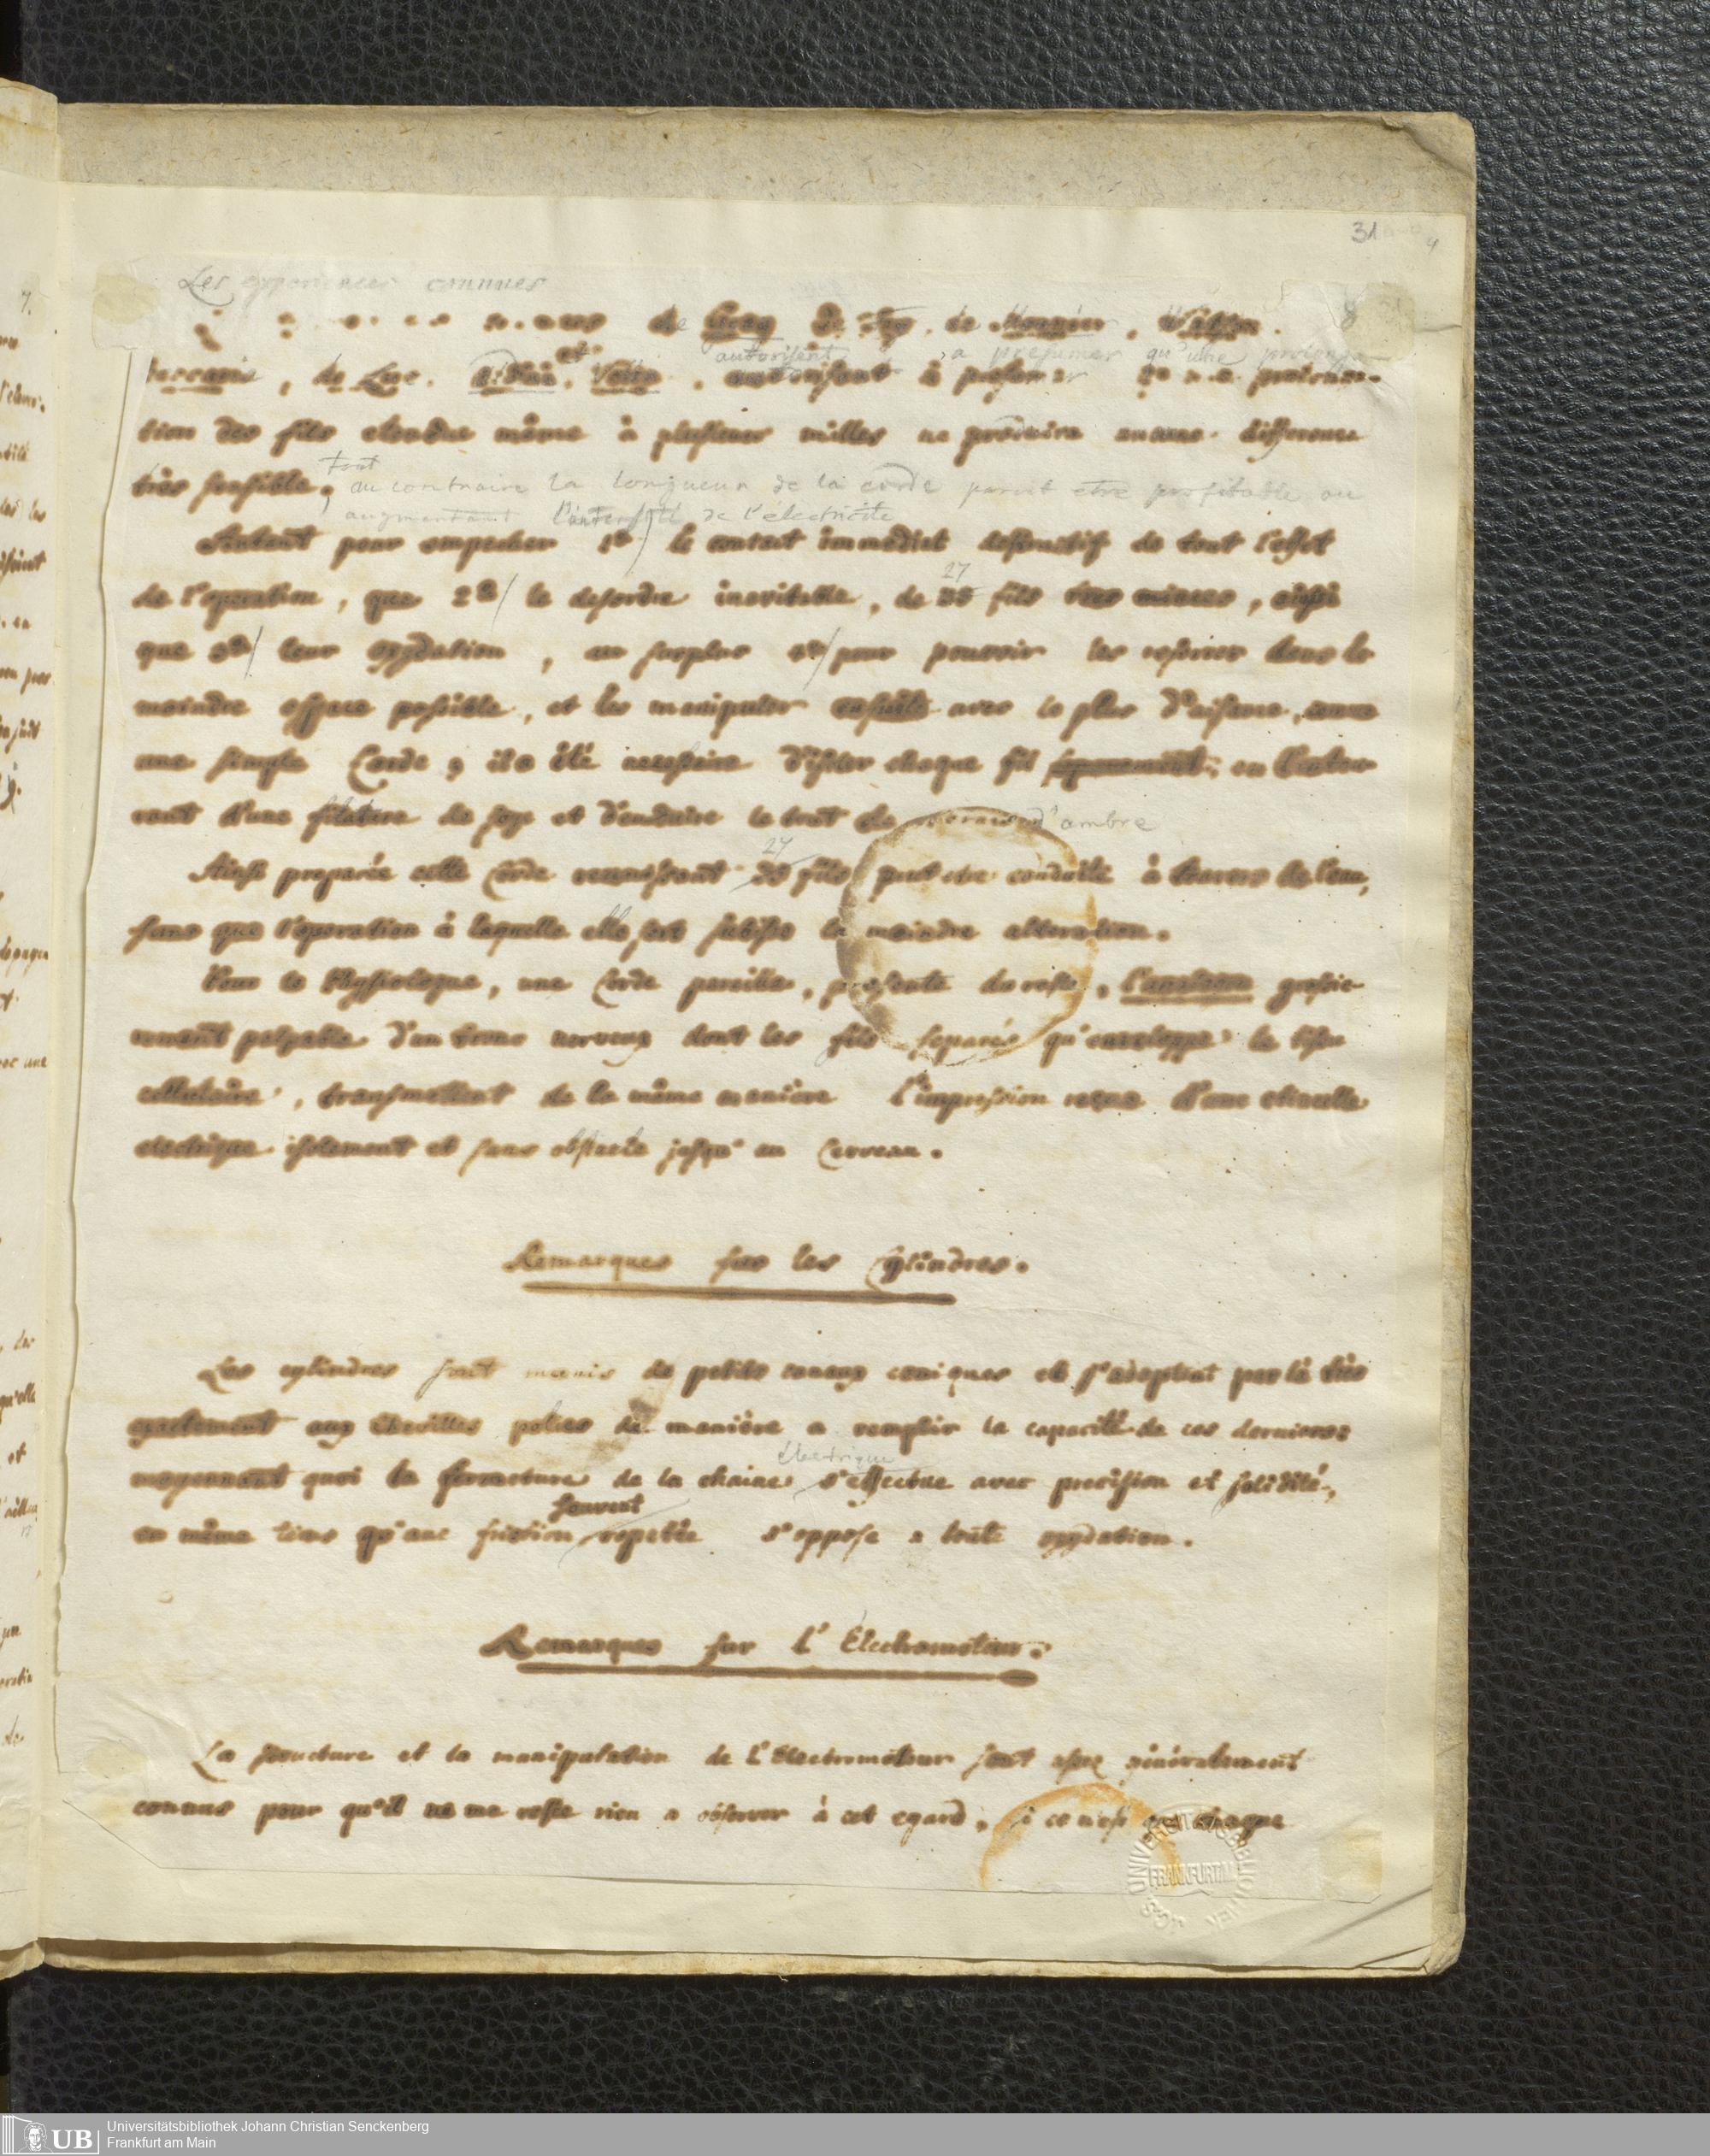 31
8
Les experiences connues
connues de Gray de Fay, de Monnier, Watson.
Beccaria, de Luc, et Volta, autorisent à presumer qu'une prolonga-
autorisent a presumer qu'une prolonga-
tion des fils etendue même à plusieurs milles ne produira aucune difference
très sensible;
tout au contraire la longueur de la corde paroit etre profitable, en
augmentant l'intensité de l'électricité
Autant pour empecher 1º/ le contact immédiat destructif de tout l'effet
de l'operation, que 2º/ le desordre inevitable, de 27 fils très minces, ainsi
que 3º/ leur oxydation, au surplus 4º/ pour pouvoir les resserrer dans le
moindre espace possible, et les manipuler ensuite avec le plus d'aisance, comme
une simple Corde, il a été necessaire d'isoler chaque fil separement, en l'entou-
rant d'une filature de soye et d'enduire le tout de vernis d'ambre
Ainsi preparée cette Corde reunissant 27 fils peut etre conduite à travers de l'eau,
sans que l'operation à laquelle elle sert subisse la moindre alteration.
Pour le Physiologue, une Corde pareille, presente du reste, l'analogon grossie-
rement palpable d'un tronc nerveux dont les fils separés qu'enveloppe le tissu
cellulaire, transmettent de la même manière l'impression reçue d'une etincelle
electrique isolement et sans obstacle jusqu'au Cerveau.
Remarques sur les Cylindres.
Les cylindres sont munis de petits canaux coniques et s'adaptent par là très
exactement aux chevilles polies de manière a remplir la capacité de ces dernieres:
moyennant quoi la fermeture de la chaine électrique s'effectue avec precision et solidité,
en même tems qu'une friction souvent repetée s'oppose a toute oxydation.
Remarques sur l'Électromoteur.
La structure et la manipulation de l'Electromoteur sont assez généralement
connus pour qu'il ne me reste rien a observer à cet egard, si ce n'est que chaque
UB
Universitätsbibliothek Johann Christian Senckenberg
Frankfurt am Main